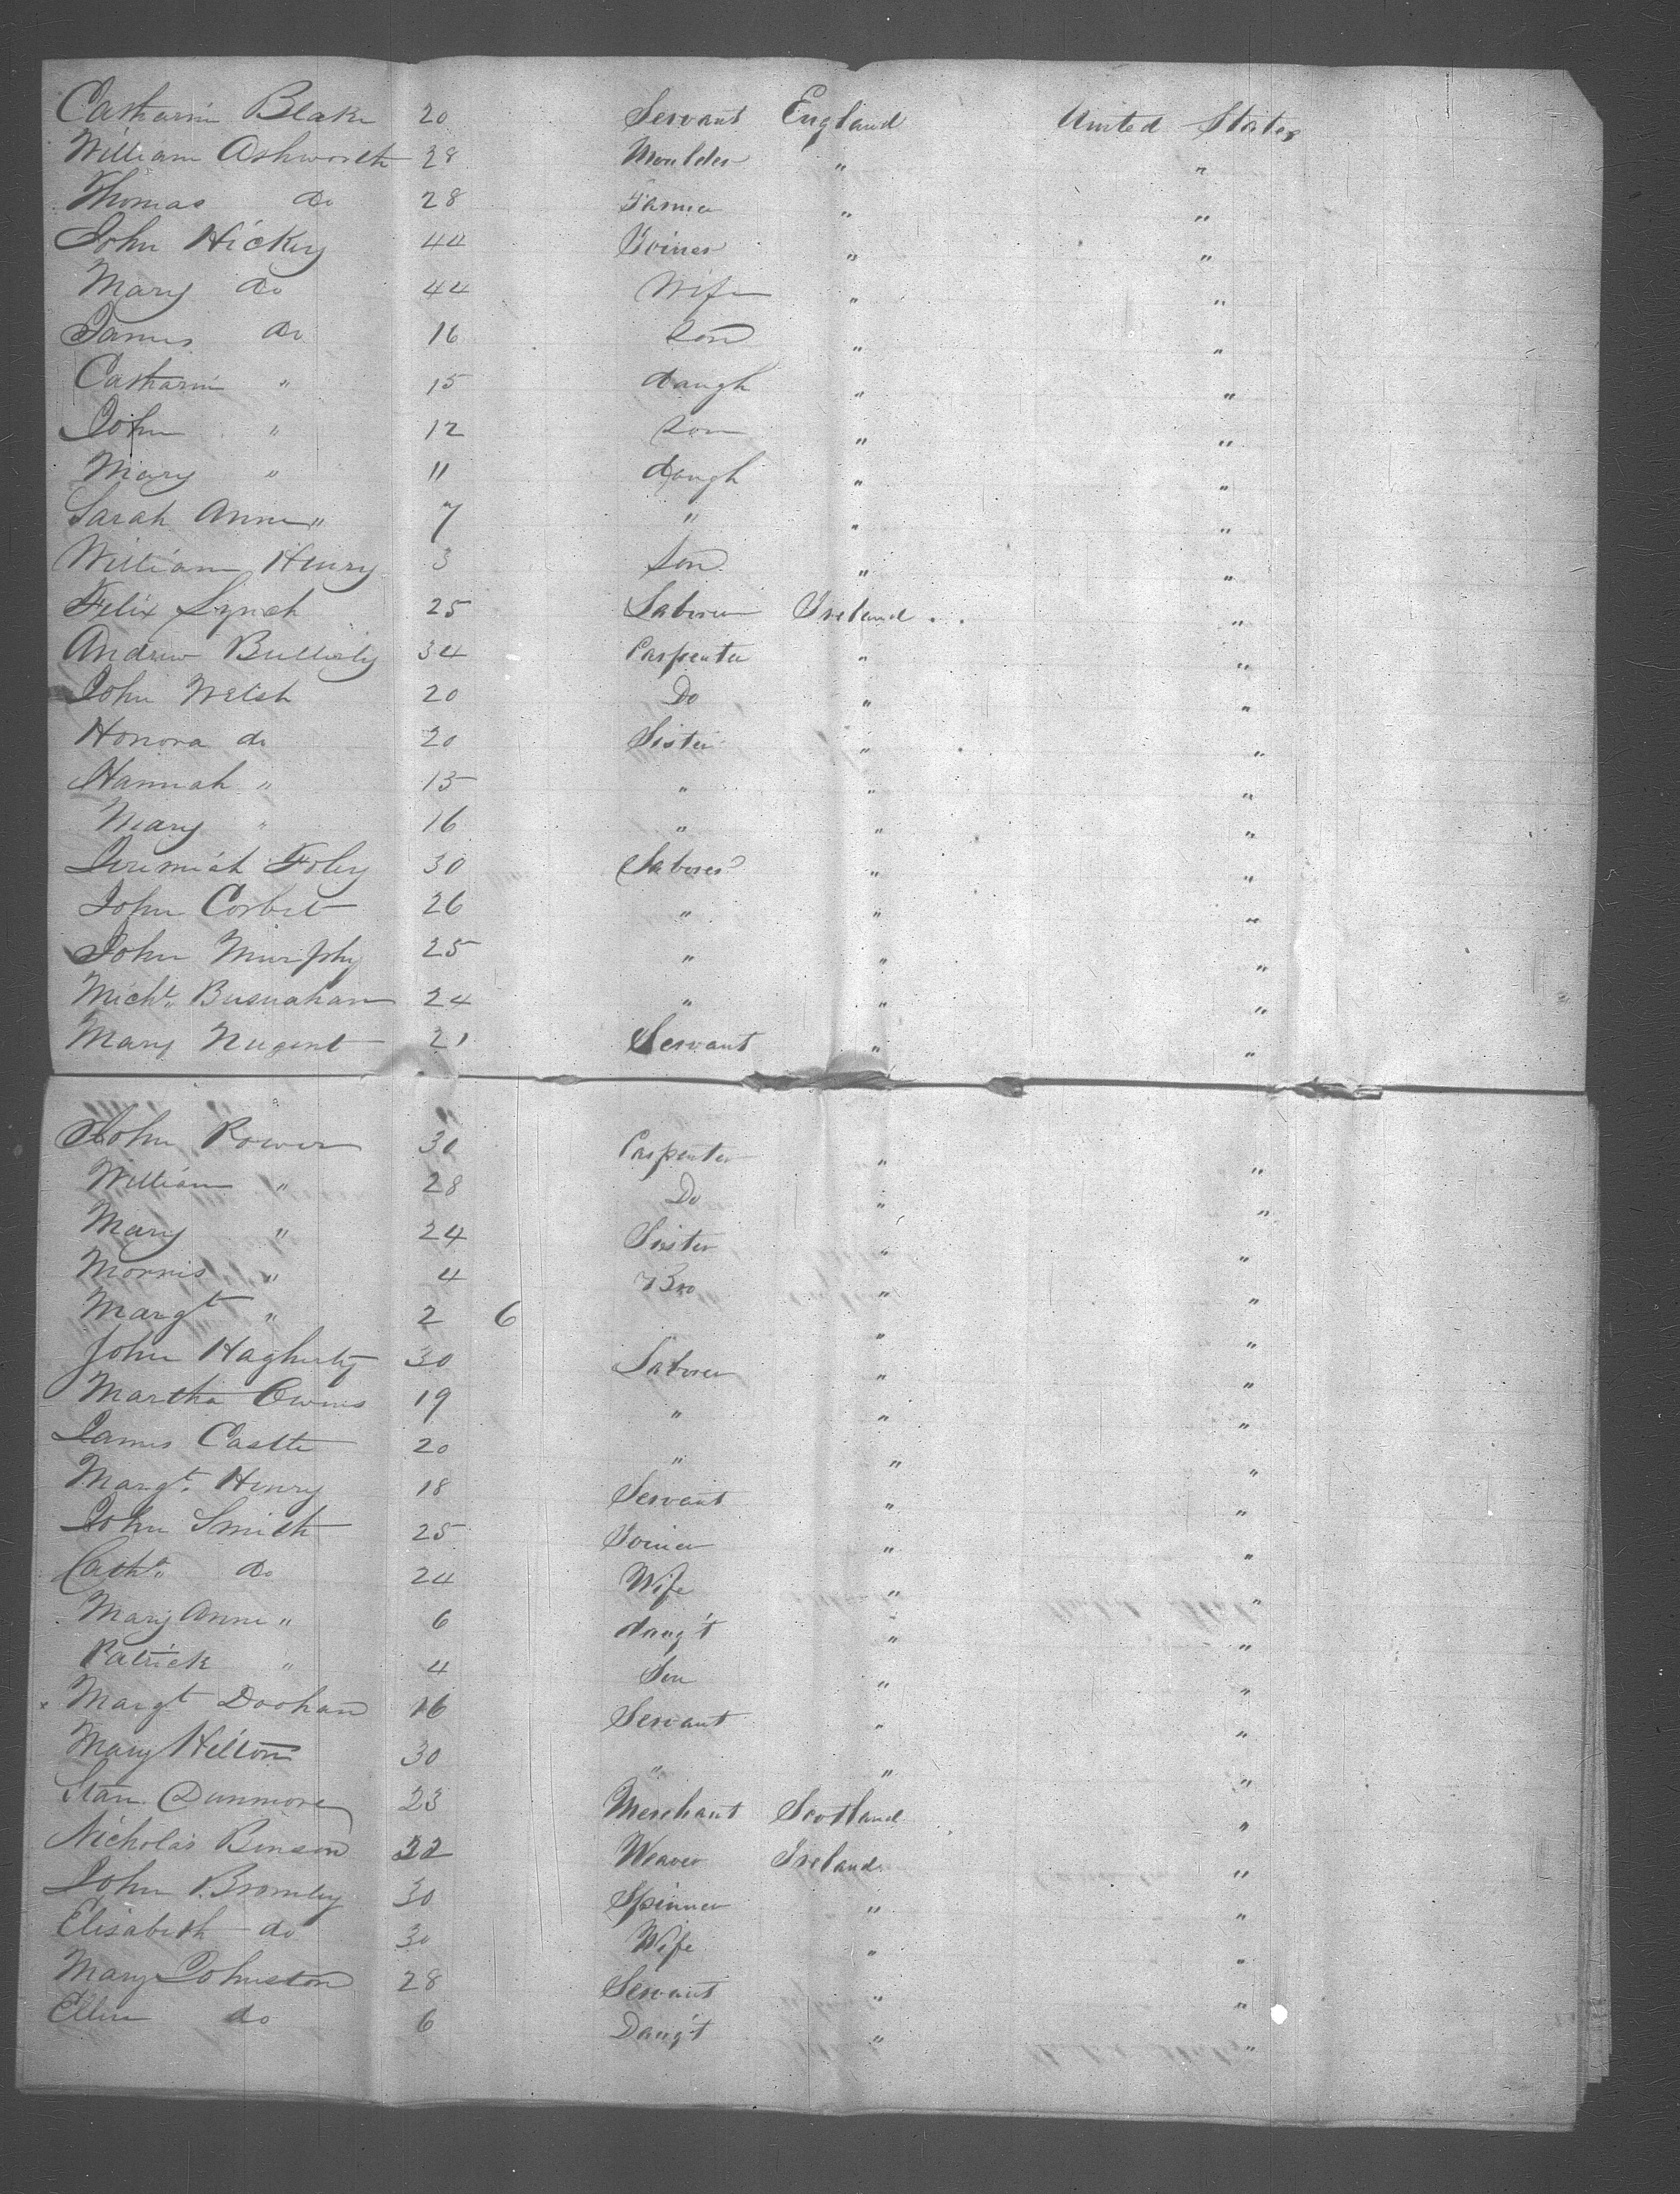 Catharin Blake 20 Servant England United States
William Ashworth 28 Moulder " "
Thomas do 28 " "
John Hickey 44 Joiner " "
Mary do 44 Wife " "
James do 16 son " "
Catharin " 15 daugh " "
John " 12 son " "
Mary " 11 daugh " "
Sarah Anne " 7 " " "
William Henry 3 son " "
Felix Lynch 25 Laborer Ireland "
Andrew 34 Carpenter " "
John Welsh 20 Do " "
Honora do 20 Sister " "
Hannah " 13 " " "
Mary " 16 " " "
Jeremiah Foley 30 Laborer " "
John Corbet 26 " " "
John Murphy 25 " " "
Michl. 24 " " "
Mary Nugent 21 Servant " "
John Power 30 Carpenter " "
William " 28 Do " "
Mary " 24 Sister " "
Morris " 4 Bro " "
Margt " 2 6 " "
John Hagherty 30 Laborer " "
Martha Owens 19 " " "
James Castle 20 " " "
Margt. Henry 18 Servant " "
John Smith 25 Joiner " "
Cathe. do 24 Wife " "
Mary Anne " 6 daug't " "
Patrick " 4 Son " "
Margt Doohan 16 Servant " "
Mary Hilton 30 " " "
Dunmore 23 Merchant Scotland "
Nicholas Benson 32 Weaver Ireland "
John Bromley 30 Spinner " "
Elisabeth do 30 Wife " "
Mary Johnston 28 Servant " "
Ellen do 6 Daug't " "